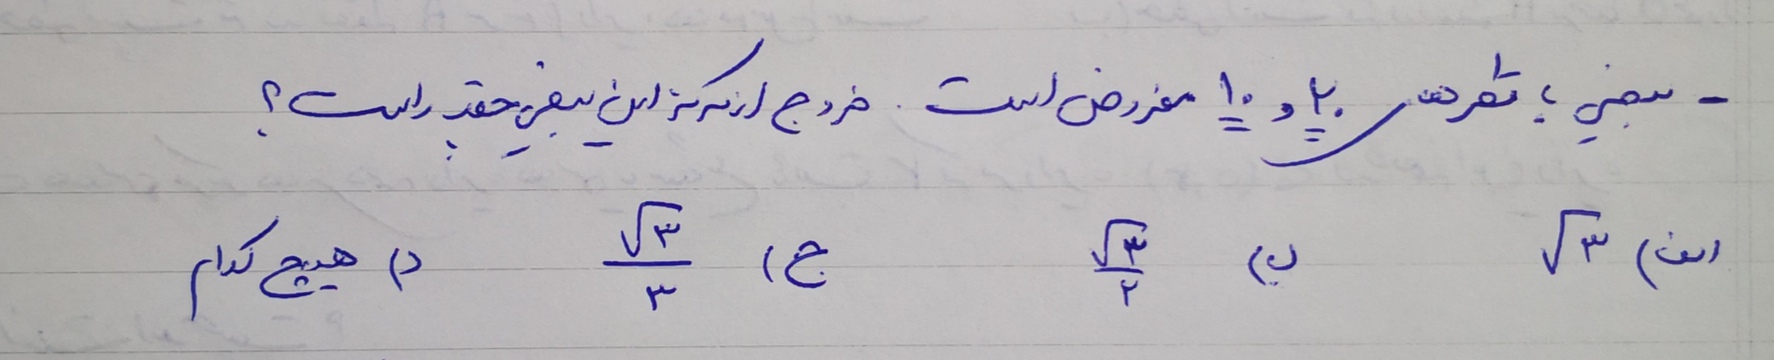 - بیضی با قطرهای ۲۰ و ۱۰ مفروض است. خروج از مرکز این بیضی چقدر است؟
الف) √۳ ب) √۳/۲ ج) √۳/۳ د) هیچ کدام